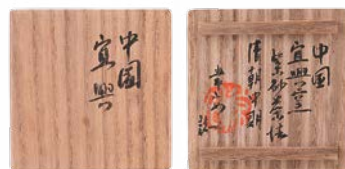 中国
宜興
中国
宜興窯
紫砂茶銚
清朝中期